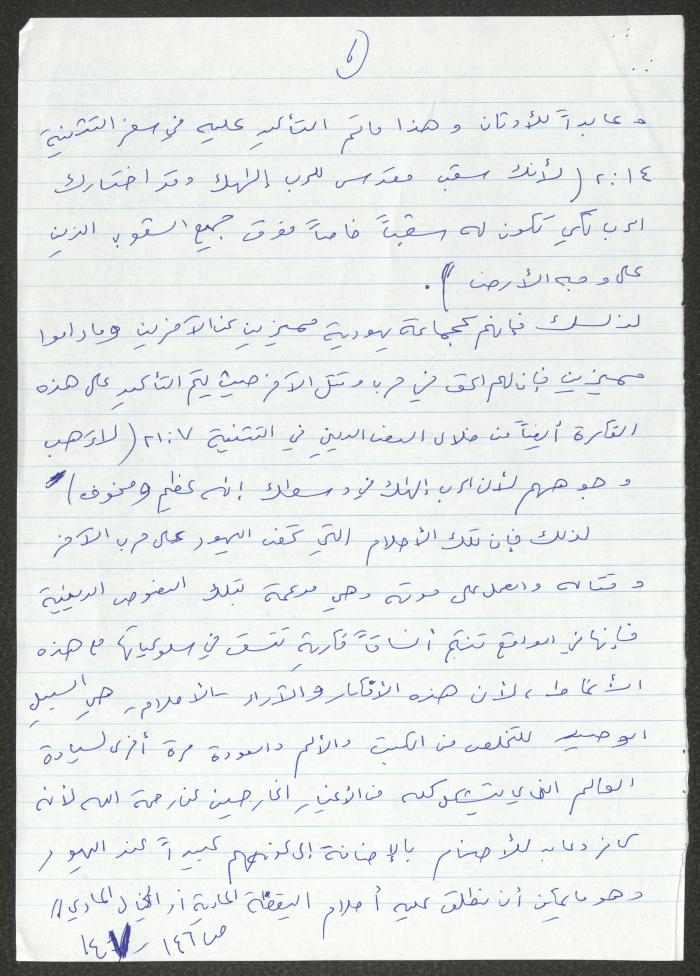 ٦
وعابداً للأوثان وهذا ما تم التأكيد عليه في سفر التثنية
١٤ : ٢ ( لأنك شعب مقدس للرب إلهك وقد اختارك
الرب لكي تكون له شعباً خاصاً فوق جميع الشعوب الذين
على وجه الأرض ) .
لذلك فإنهم كجماعة يهودية مميزين عن الآخرين وما داموا
مميزين فإن لهم الحق في حرب وقتل الآخر حيث يتم التأكيد على هذه
الفكرة أيضاً من خلال النص الديني في التثنية ٧ : ٢١ ( لا ترهب
وجوههم لأن الرب إلهك في وسطك إله عظيم ومخوف )
لذلك فإن تلك الأحلام التي تحض اليهود على حرب الآخر
وقتاله والعمل على موته وهي مدعمة بتلك النصوص الدينية
فإنها في الواقع تنتج أنساقاً فكرية تتسق في سلوكياتها مع هذه
الأنماط ، لأن هذه الأفكار والآراء - الأحلام - هي السبيل
الوحيد للتخلص من الكبت والألم والعودة مرة أخرى لسيادة
العالم الذي يتشكل كله من الأغيار الخارجين عن رحمة الله لأنه
كافر وعابد للأصنام بالإضافة إلى كونهم عبيداً عند اليهود
وهو ما يمكن أن نطلق عليه أحلام اليقظة المادية أو الخيال المادي //
ص ١٤٦ - ١٤٧